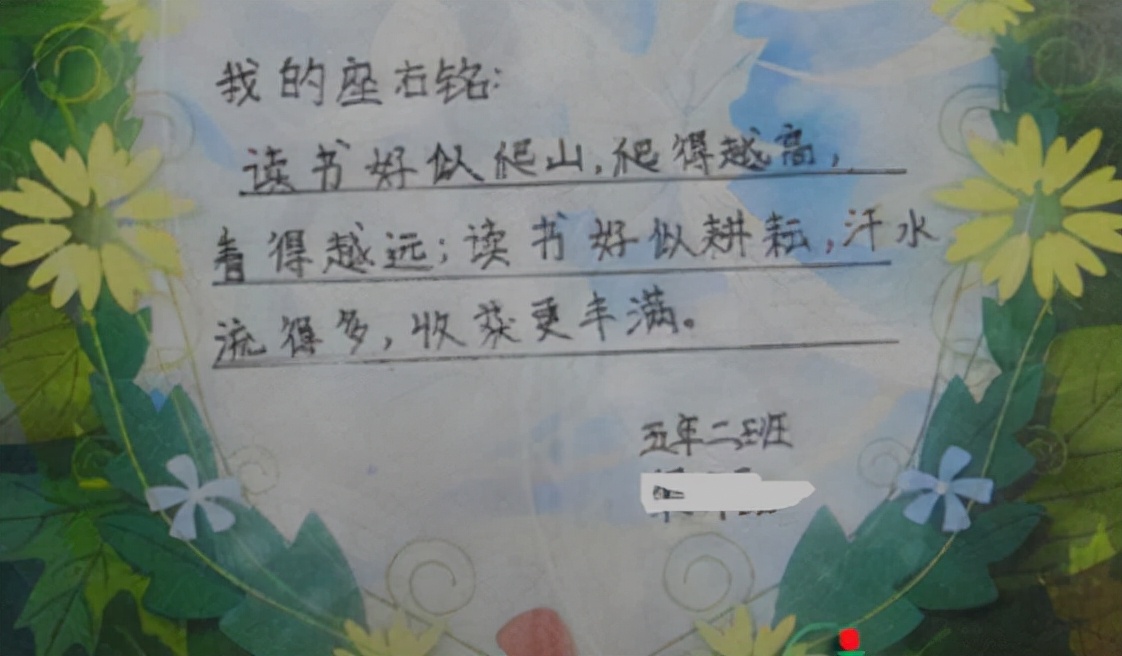 我的座右铭:
读书好似爬山,爬得越高,
看得越远;读书好似耕耘,汗水
流得多,收获更丰满。
五年二班